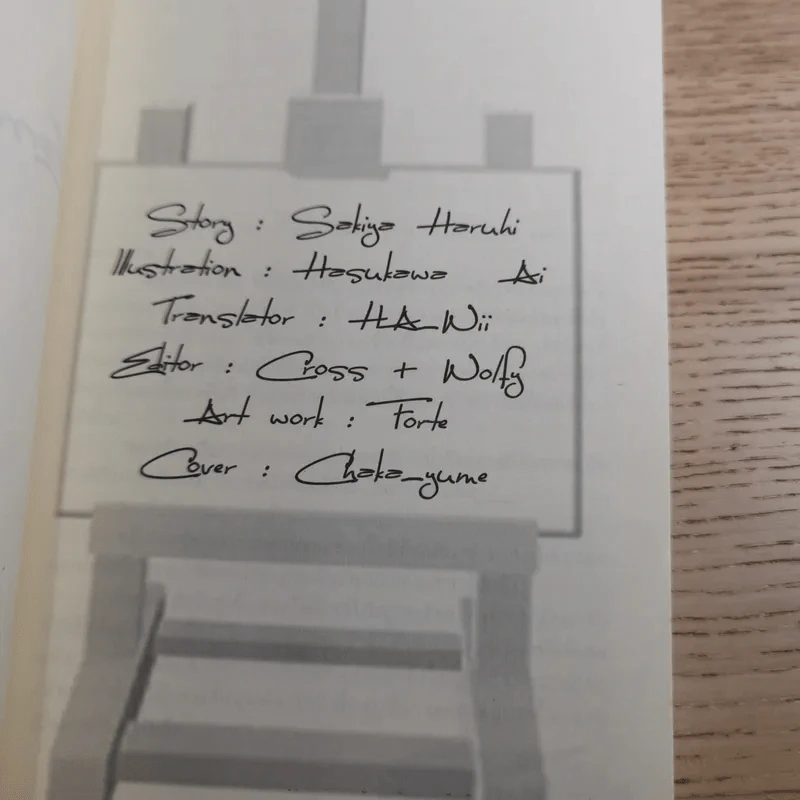 Story : Sakiya Haruhi
Illustration : Hasukawa Ai
Translator : HA_Wii
Editor : Cross + Wolfy
Art work : Forte
Cover : Chaka_yume